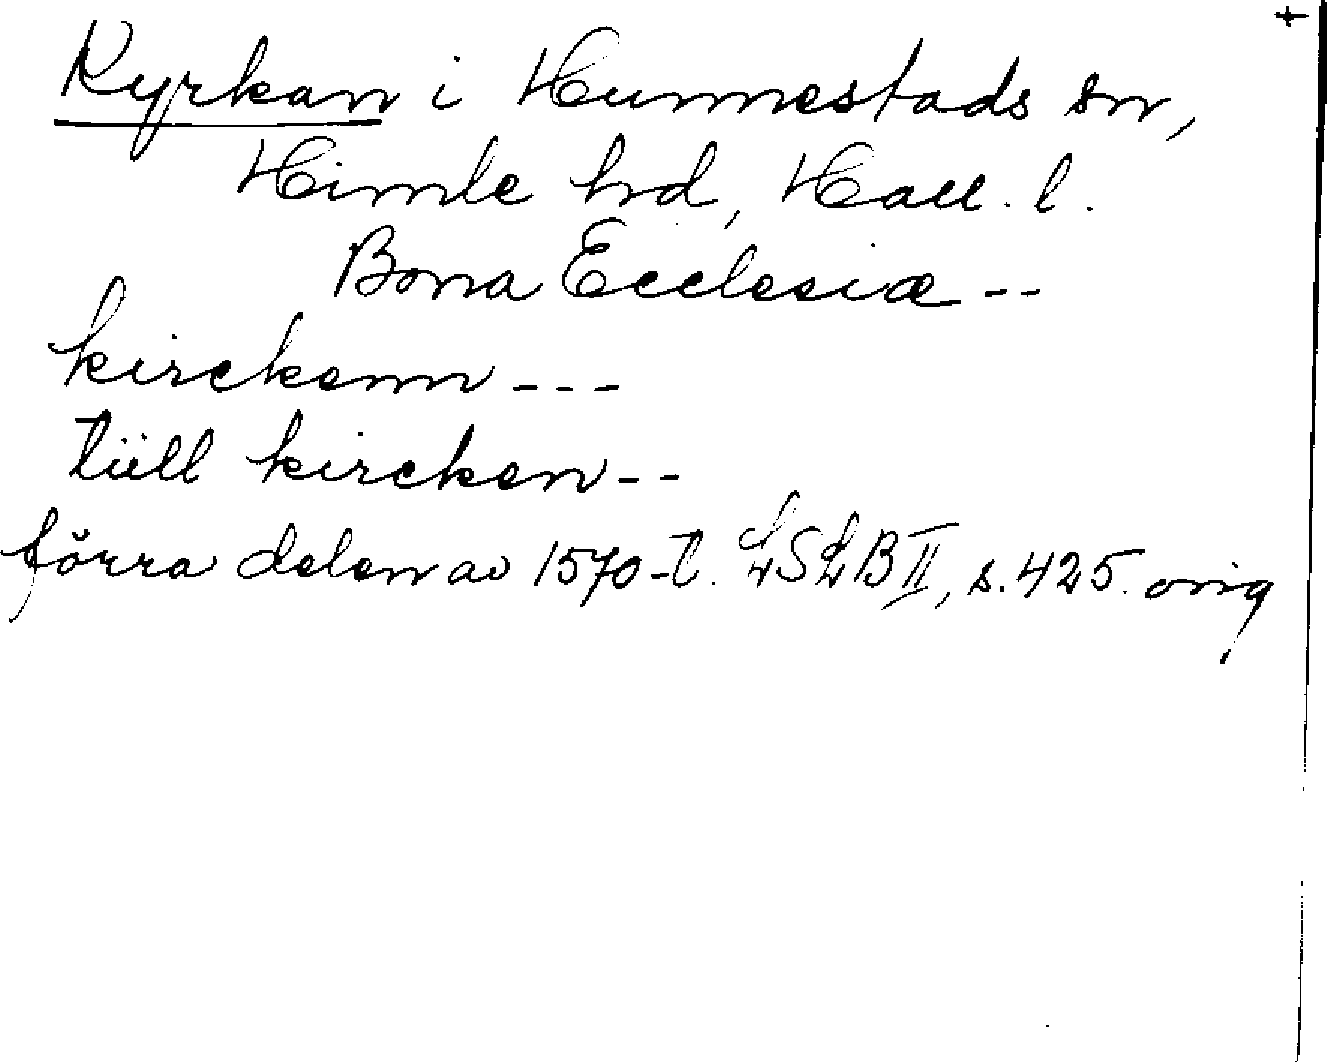 +
Kyrkan i Hunnestads sn,
Himle hd, Hall. l.
Bona Ecclesiæ --
kirckenn ---
tüll kircken --
förra delen av 1570-t. LSLB II, s. 425. orig